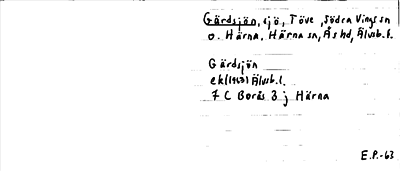 Gärdsjön, sjö, Töve, Södra Vings sn
o. Härna, Härna sn, Ås hd, Älvsb. l.
Gärdsjön
ek (1963) Älvsb. l.
7 C Borås 3 j Härna
E.P.-63